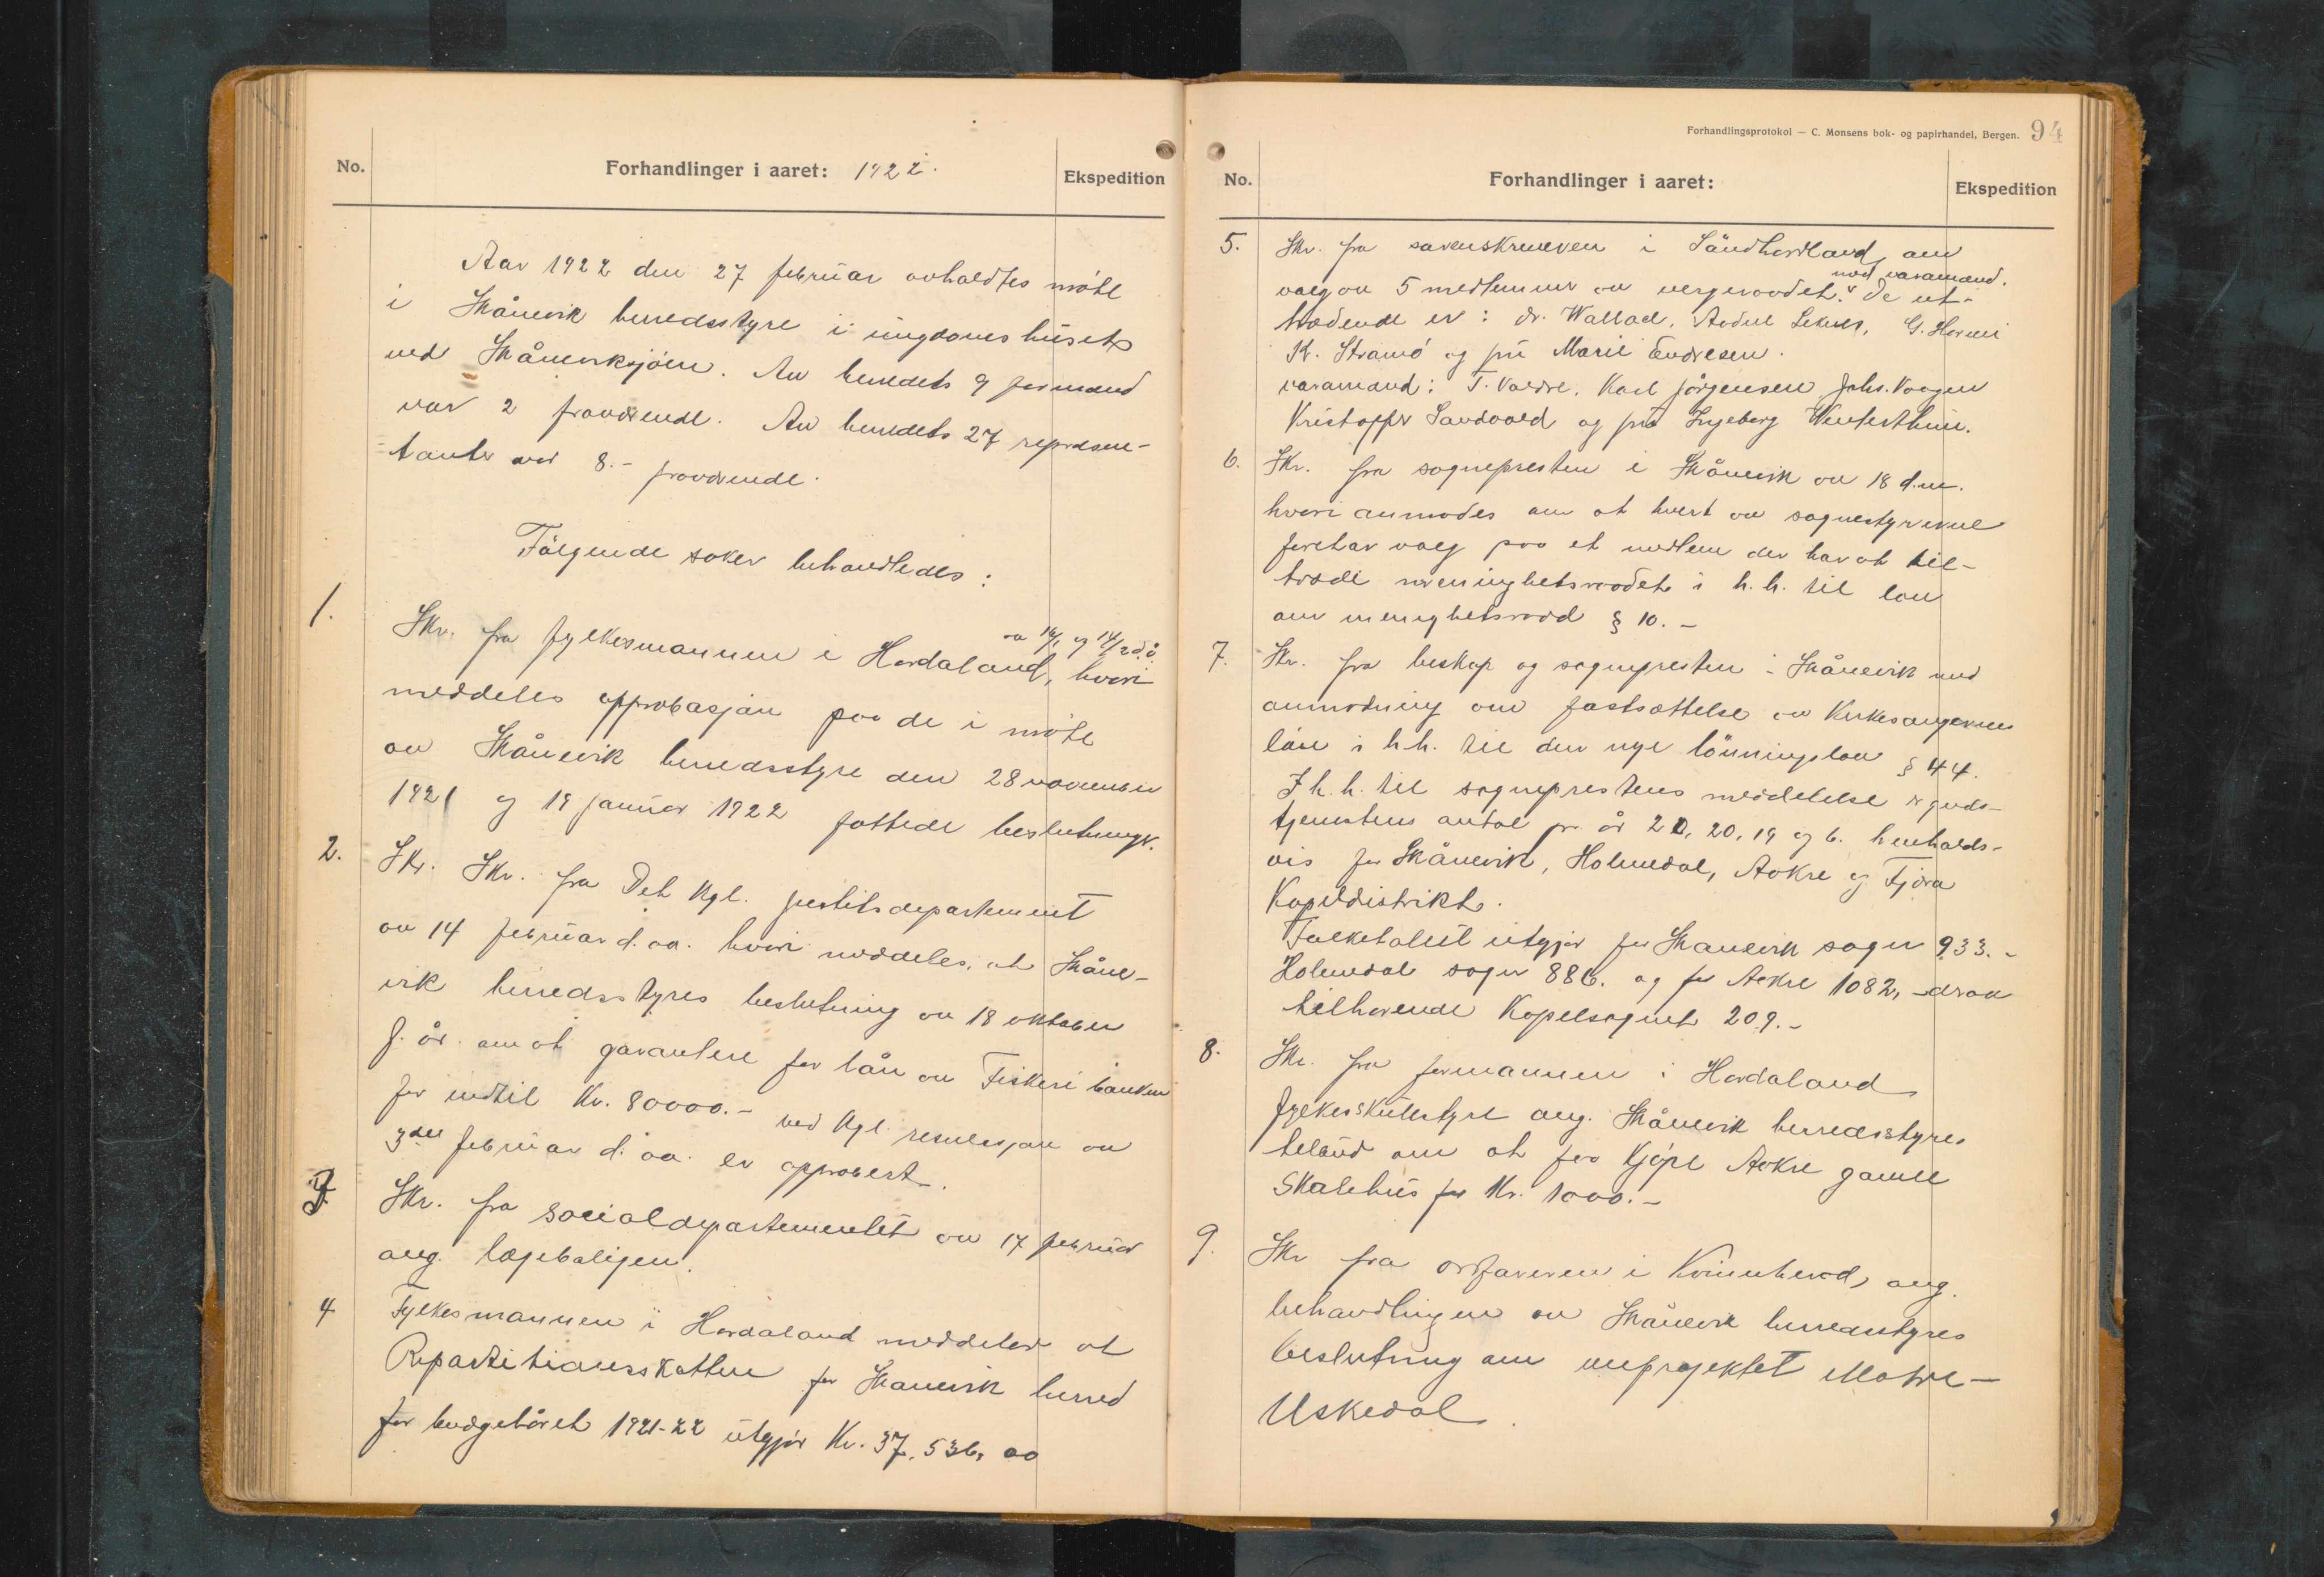 No.
Forhandlinger i aaret: 1922.
Ekspedition
Aar 1922 den 27 februar avholdtes möte
i Skånevik herredsstyre i ungdomshuset
ved Skåneviksjöen. Av herredets 9 formænd
var 2 fraværende. Av herredets 27 repræsen-
tanter var 8.- fraværende.
Følgende saker behandledes:
av 16/1 og 14/2 d.å.
1. Skr. fra fylkesmannen i Hordaland, hvori
meddeles approbasjon paa de i möte
av Skånevik herredsstyre den 28 november
1921 og 19 januar 1922 fattede beslutninger.
2. Skr. Skr. fra Det kgl. justitsdepartement
av 14 februar d.aa. hvori meddeles, at Skåne-
vik herredsstyres beslutning av 18 oktober
f. år om at garantere for lån av Fiskeribanken
for indtil Kr. 80000.- ved kgl. resolusjon av
3die februar d.aa. er approbert.
3 Skr. fra socialdepartementet av 17 februar
ang. lægeboligen.
4 Fylkesmannen i Hordaland meddeler at
Repartitionsskatten for Skanevik herred
for budgetåret 1921-22 utgjör Kr. 37.536,00
Forhandlingsprotokol — C. Monsens bok- og papirhandel, Bergen. 94
No.
Forhandlinger i aaret:
Ekspedition
5. Skr. fra sorenskriveren i Söndhordland, om
med varamænd.
valg av 5 medlemmer av vergeraadet. De ut-
trædende er: dr. Wallace,
K. Stramö og fru Marie Endresen.
varamænd: T. Valdre, Karl Jörgensen, Johs. Vaagen
Kristoffer Sandvold og fru Ingeborg
6. Skr. fra sognepresten i Skånevik av 18 d.m.
hvori anmodes om at hvert av sognestyrerne
foretar valg paa et medlem der har at til-
træde menighetsraadet i h.h. til lov
om menighetsraad § 10.-
7. Skr. fra biskop og sognepresten i Skånevik med
anmodning om fastsættelse av Kirkesangernes
lön i h.h. til den nye lönningslov § 44.
I h.h. til sogneprestens meddelelse er guds-
tjenestens antal pr. år 20, 20, 19 og 6. henholds-
vis for Skånevik, Holmedal, Aakre og Fjæra
Kapeldistrikt.
Folketallet utgjør for Skanevik sogn 933.-
Holmedal sogn 886. og for Aakre 1082, -derav
tilhørende Kapelsognet 209.-
8. Skr. fra formannen i Hordaland
fylkesskulestyre ang. Skånevik herredsstyres
tilbud om at faa kjöpe Aakre gamle
Skolehus for Kr. 1000.-
9. Skr fra ordføreren i Kvinnherad, ang.
behandlingen av Skånevik herredsstyres
beslutning om veiprojektet Matre-
Uskedal.